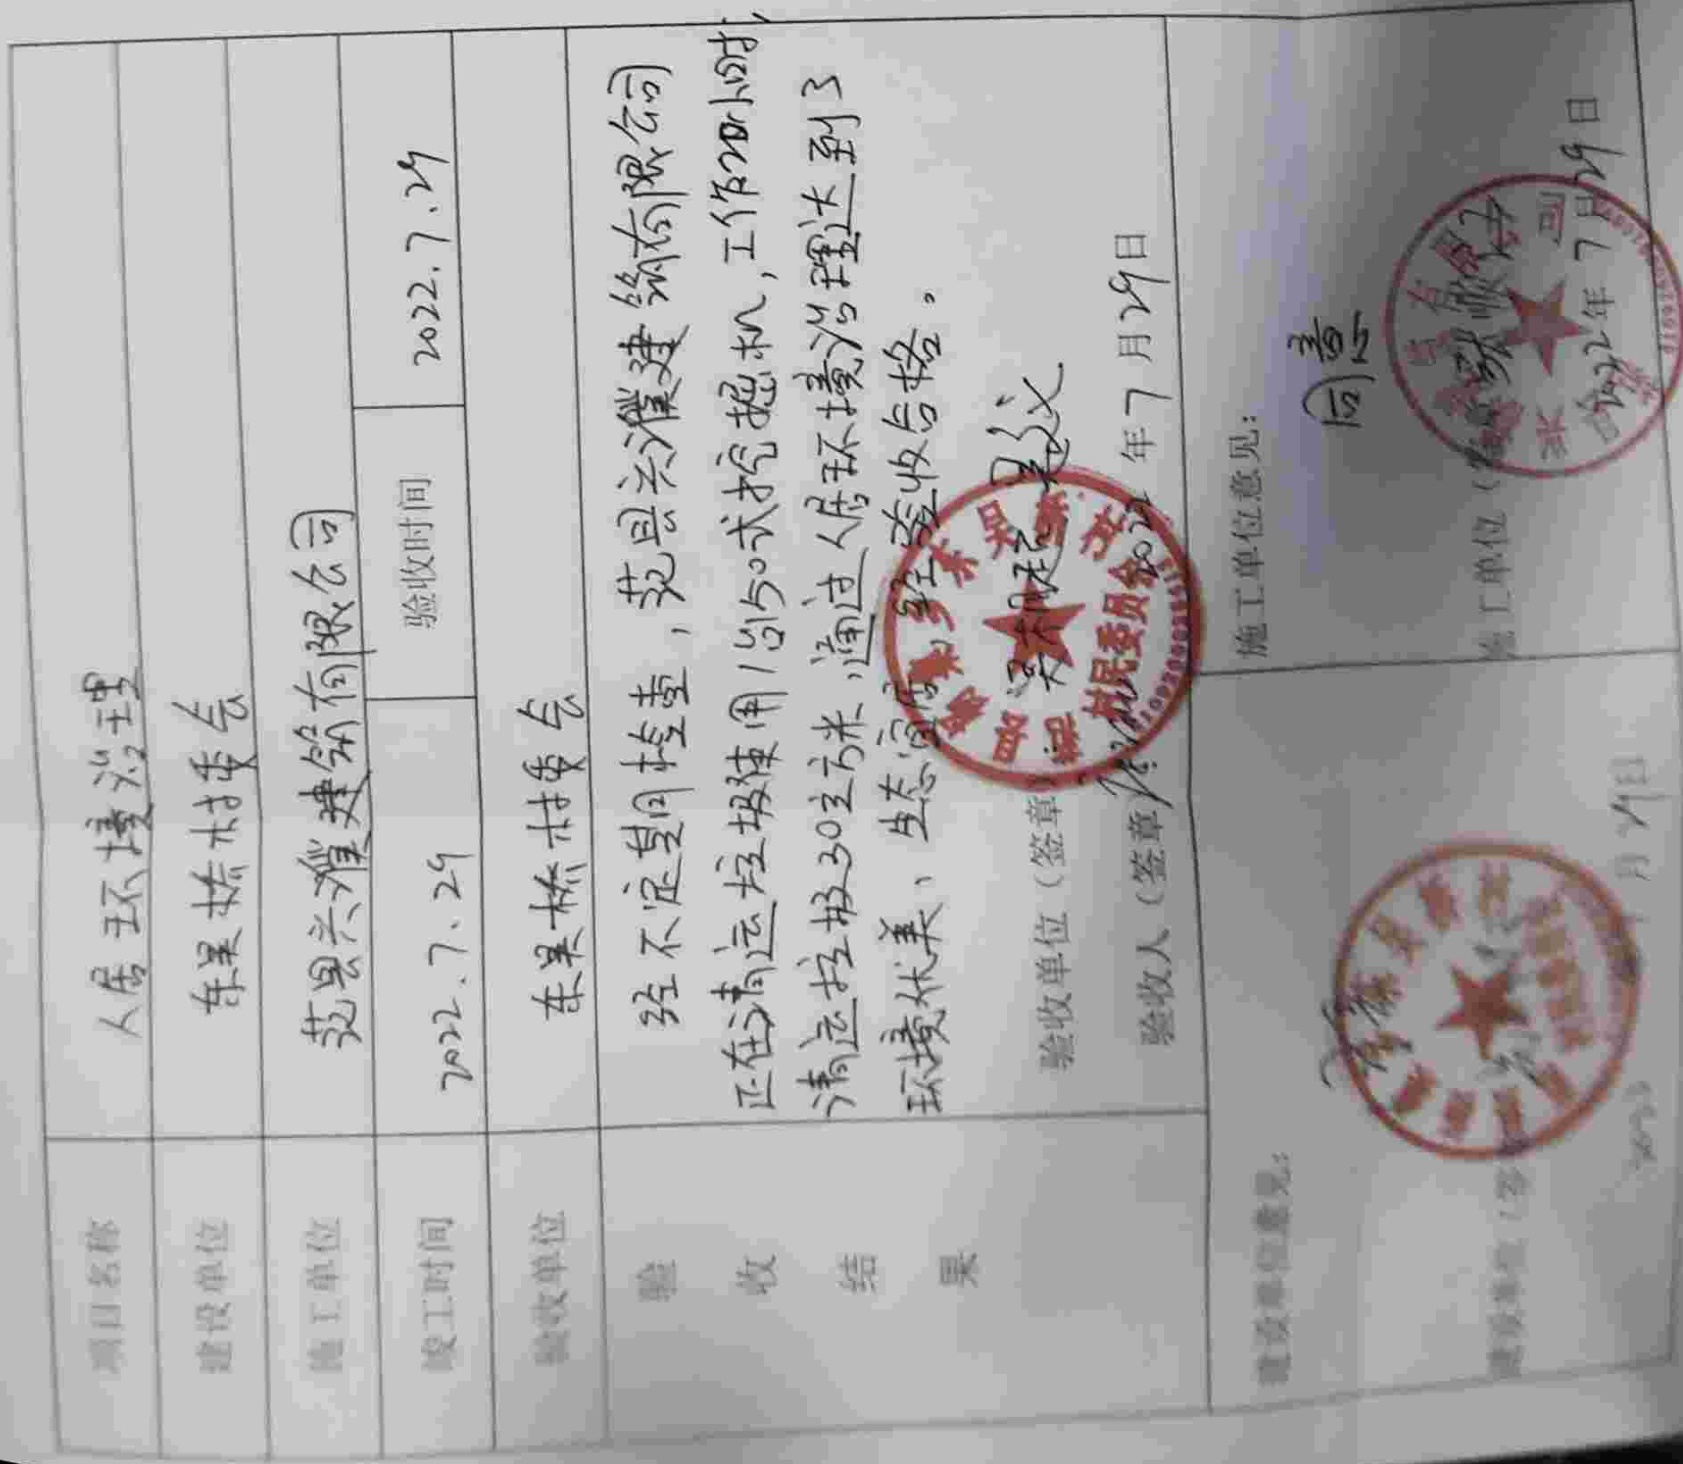 项目名称 人居环境治理
建设单位 东吴桥村委会
施工单位 范县兴濮建筑有限公司
竣工时间 2022.7.29 验收时间 2022.7.29
验收单位 东吴桥村委会
验收结果
经不定期间检查，范县兴濮建筑有限公司
正在清运垃圾使用1台150式挖掘机，工作20小时，
清运垃圾230立方米，通过人居环境治理达到了
环境优美、生态宜居，经验收合格。
验收单位（签章）
村民委员会
验收人（签章）
2022年7月29日
建设单位意见：
建设单位（签
月29日
施工单位意见：
同意
施工单位（签
2022年7月29日